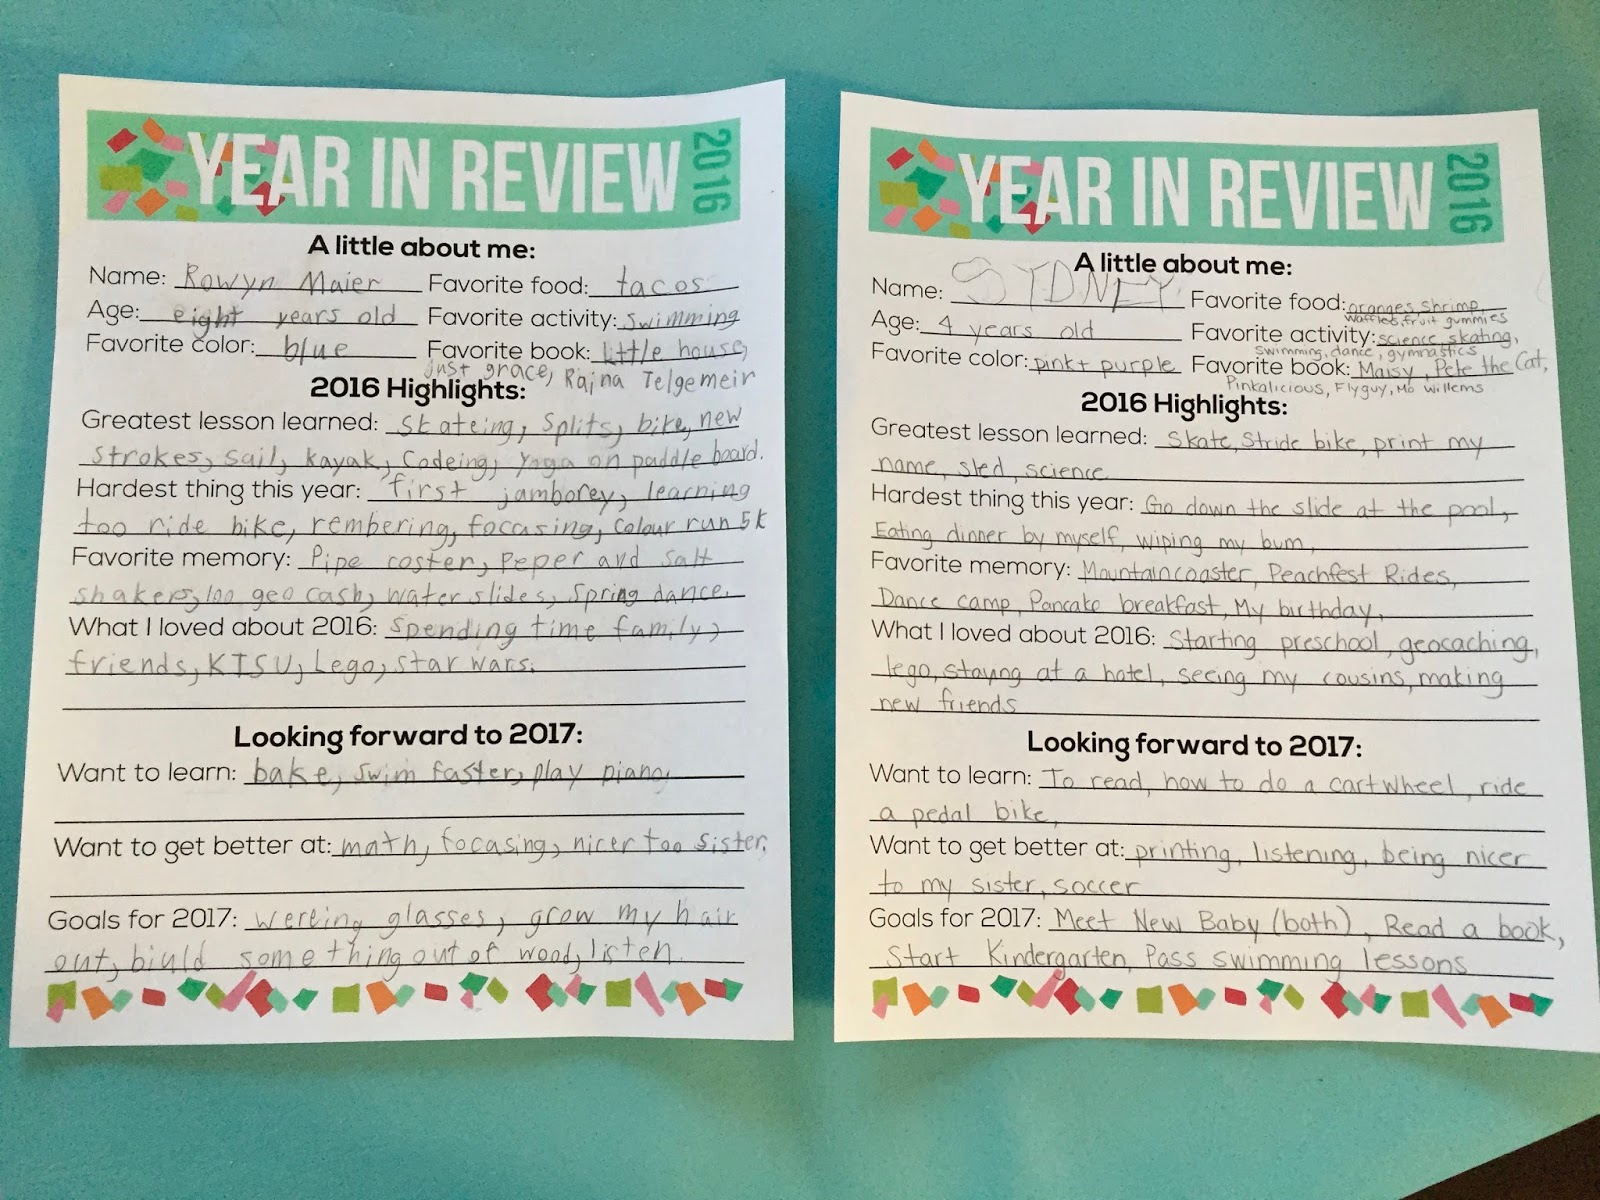 YEAR IN REVIEW 2016
A little about me:
Name: Rowyn Maier Favorite food: tacos
Age: eight years old Favorite activity: swimming
Favorite color: blue Favorite book: little house,
just grace, Raina Telgemeir
2016 Highlights:
Greatest lesson learned: skateing, splits, bike, new
strokes, sail, kayak, codeing, yoga on paddle board.
Hardest thing this year: first jamborey, learning
too ride bike, rembering, focusing, colour run 5k
Favorite memory: Pipe coster, Peper and salt
shakers, 100 geo cash, water slides, spring dance.
What I loved about 2016: spending time family,
friends, KTSU, Lego, star wars.
Looking forward to 2017:
Want to learn: bake, swim faster, play piano,
Want to get better at: math, focasing, nicer too sister,
Goals for 2017: glasses, grow my hair
out, biuld something out of wood, listen.
YEAR IN REVIEW 2016
A little about me:
Name: SYDNEY Favorite food: oranges, shrimp,
waffles, fruit gummies
Age: 4 years old Favorite activity: science, skating,
swimming, dance, gymnastics
Favorite color: pink + purple Favorite book: Maisy, Pete the Cat,
Pinkalicious, Flyguy, Mo willems
2016 Highlights:
Greatest lesson learned: skate, stride bike, print my
name, sled, science
Hardest thing this year: Go down the slide at the pool,
Eating dinner by myself, wiping my bum,
Favorite memory: Mountaincoaster, Peachfest Rides,
Dance camp, Pancake breakfast, My birthday,
What I loved about 2016: Starting preschool, geocaching,
lego, stayng at a hotel, seeing my cousins, making
new friends
Looking forward to 2017:
Want to learn: To read, how to do a cartwheel, ride
a pedal bike,
Want to get better at: printing, listening, being nicer
to my sister, soccer
Goals for 2017: Meet New Baby (both), Read a book,
Start Kindergarten, Pass swimming lessons